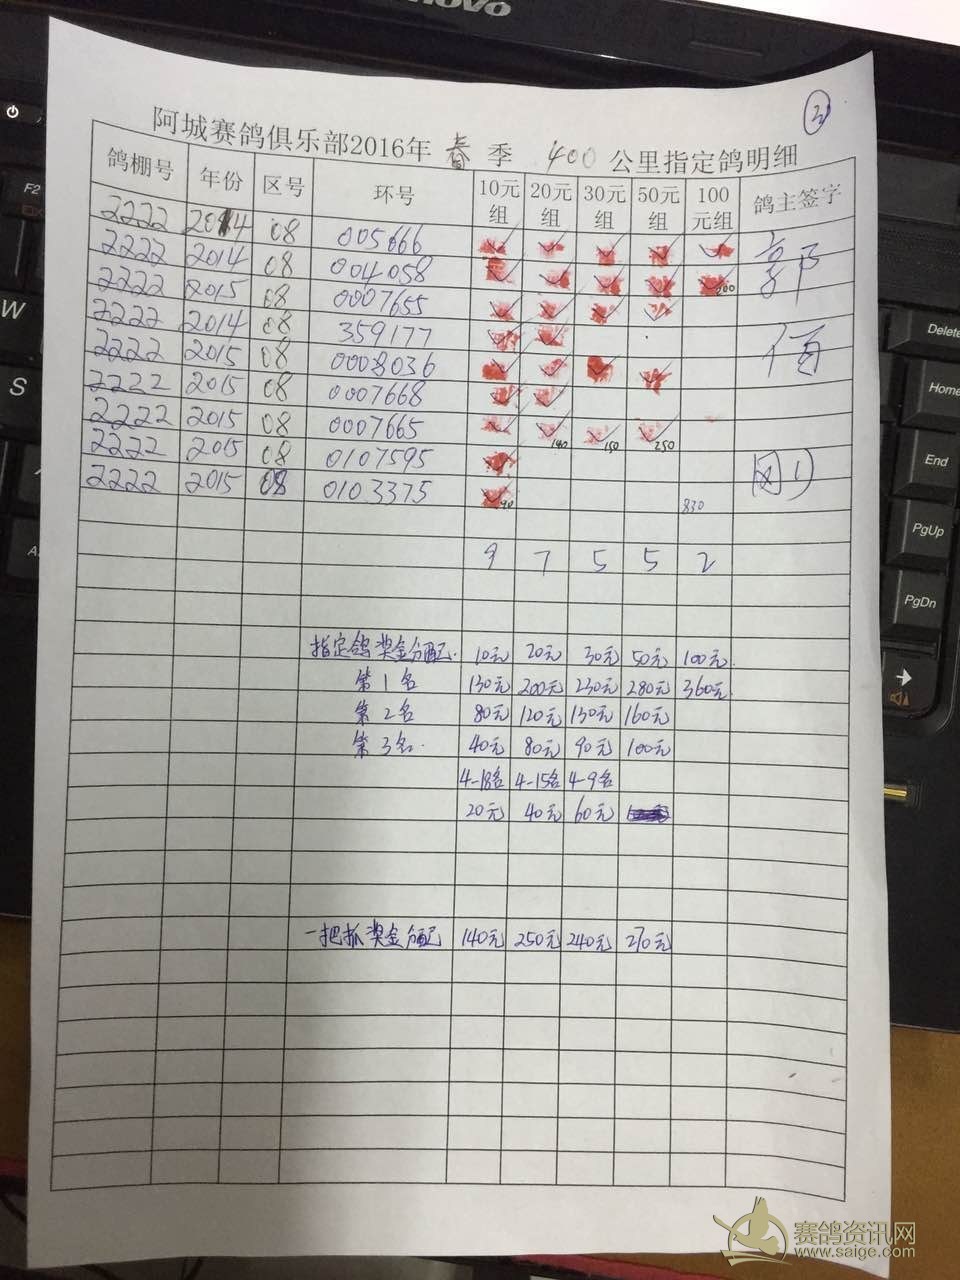 novo
②
阿城赛鸽俱乐部2016年 春 季 400 公里指定鸽明细
鸽棚号 年份 区号 环号 10元组 20元组 30元组 50元组 100元组 鸽主签字
2222 2014 08 005666
2222 2014 08 004058 200
2222 2015 08 0007655
2222 2014 08 359177
2222 2015 08 0008036
2222 2015 08 0007668
2222 2015 08 0007665 140 150 250
2222 2015 08 0107595
2222 2015 08 0103375 90 830
9 7 5 5 2
指定鸽奖金分配 10元 20元 30元 50元 100元
第1名 130元 200元 230元 280元 360元
第2名 80元 120元 130元 160元
第3名 40元 80元 90元 100元
4-18名 4-15名 4-9名
20元 40元 60元
一把抓奖金分配 140元 250元 240元 270元
F2
W
S
A
Delete
Home
End
PgUp
PgDn
赛鸽资讯网
www.saige.com